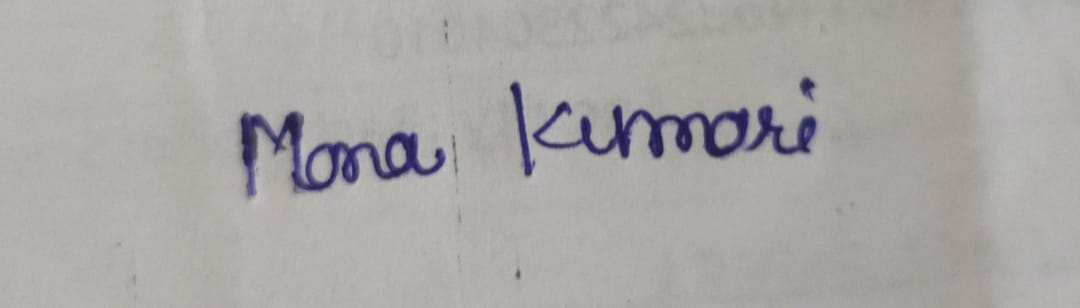 Mona Kumari